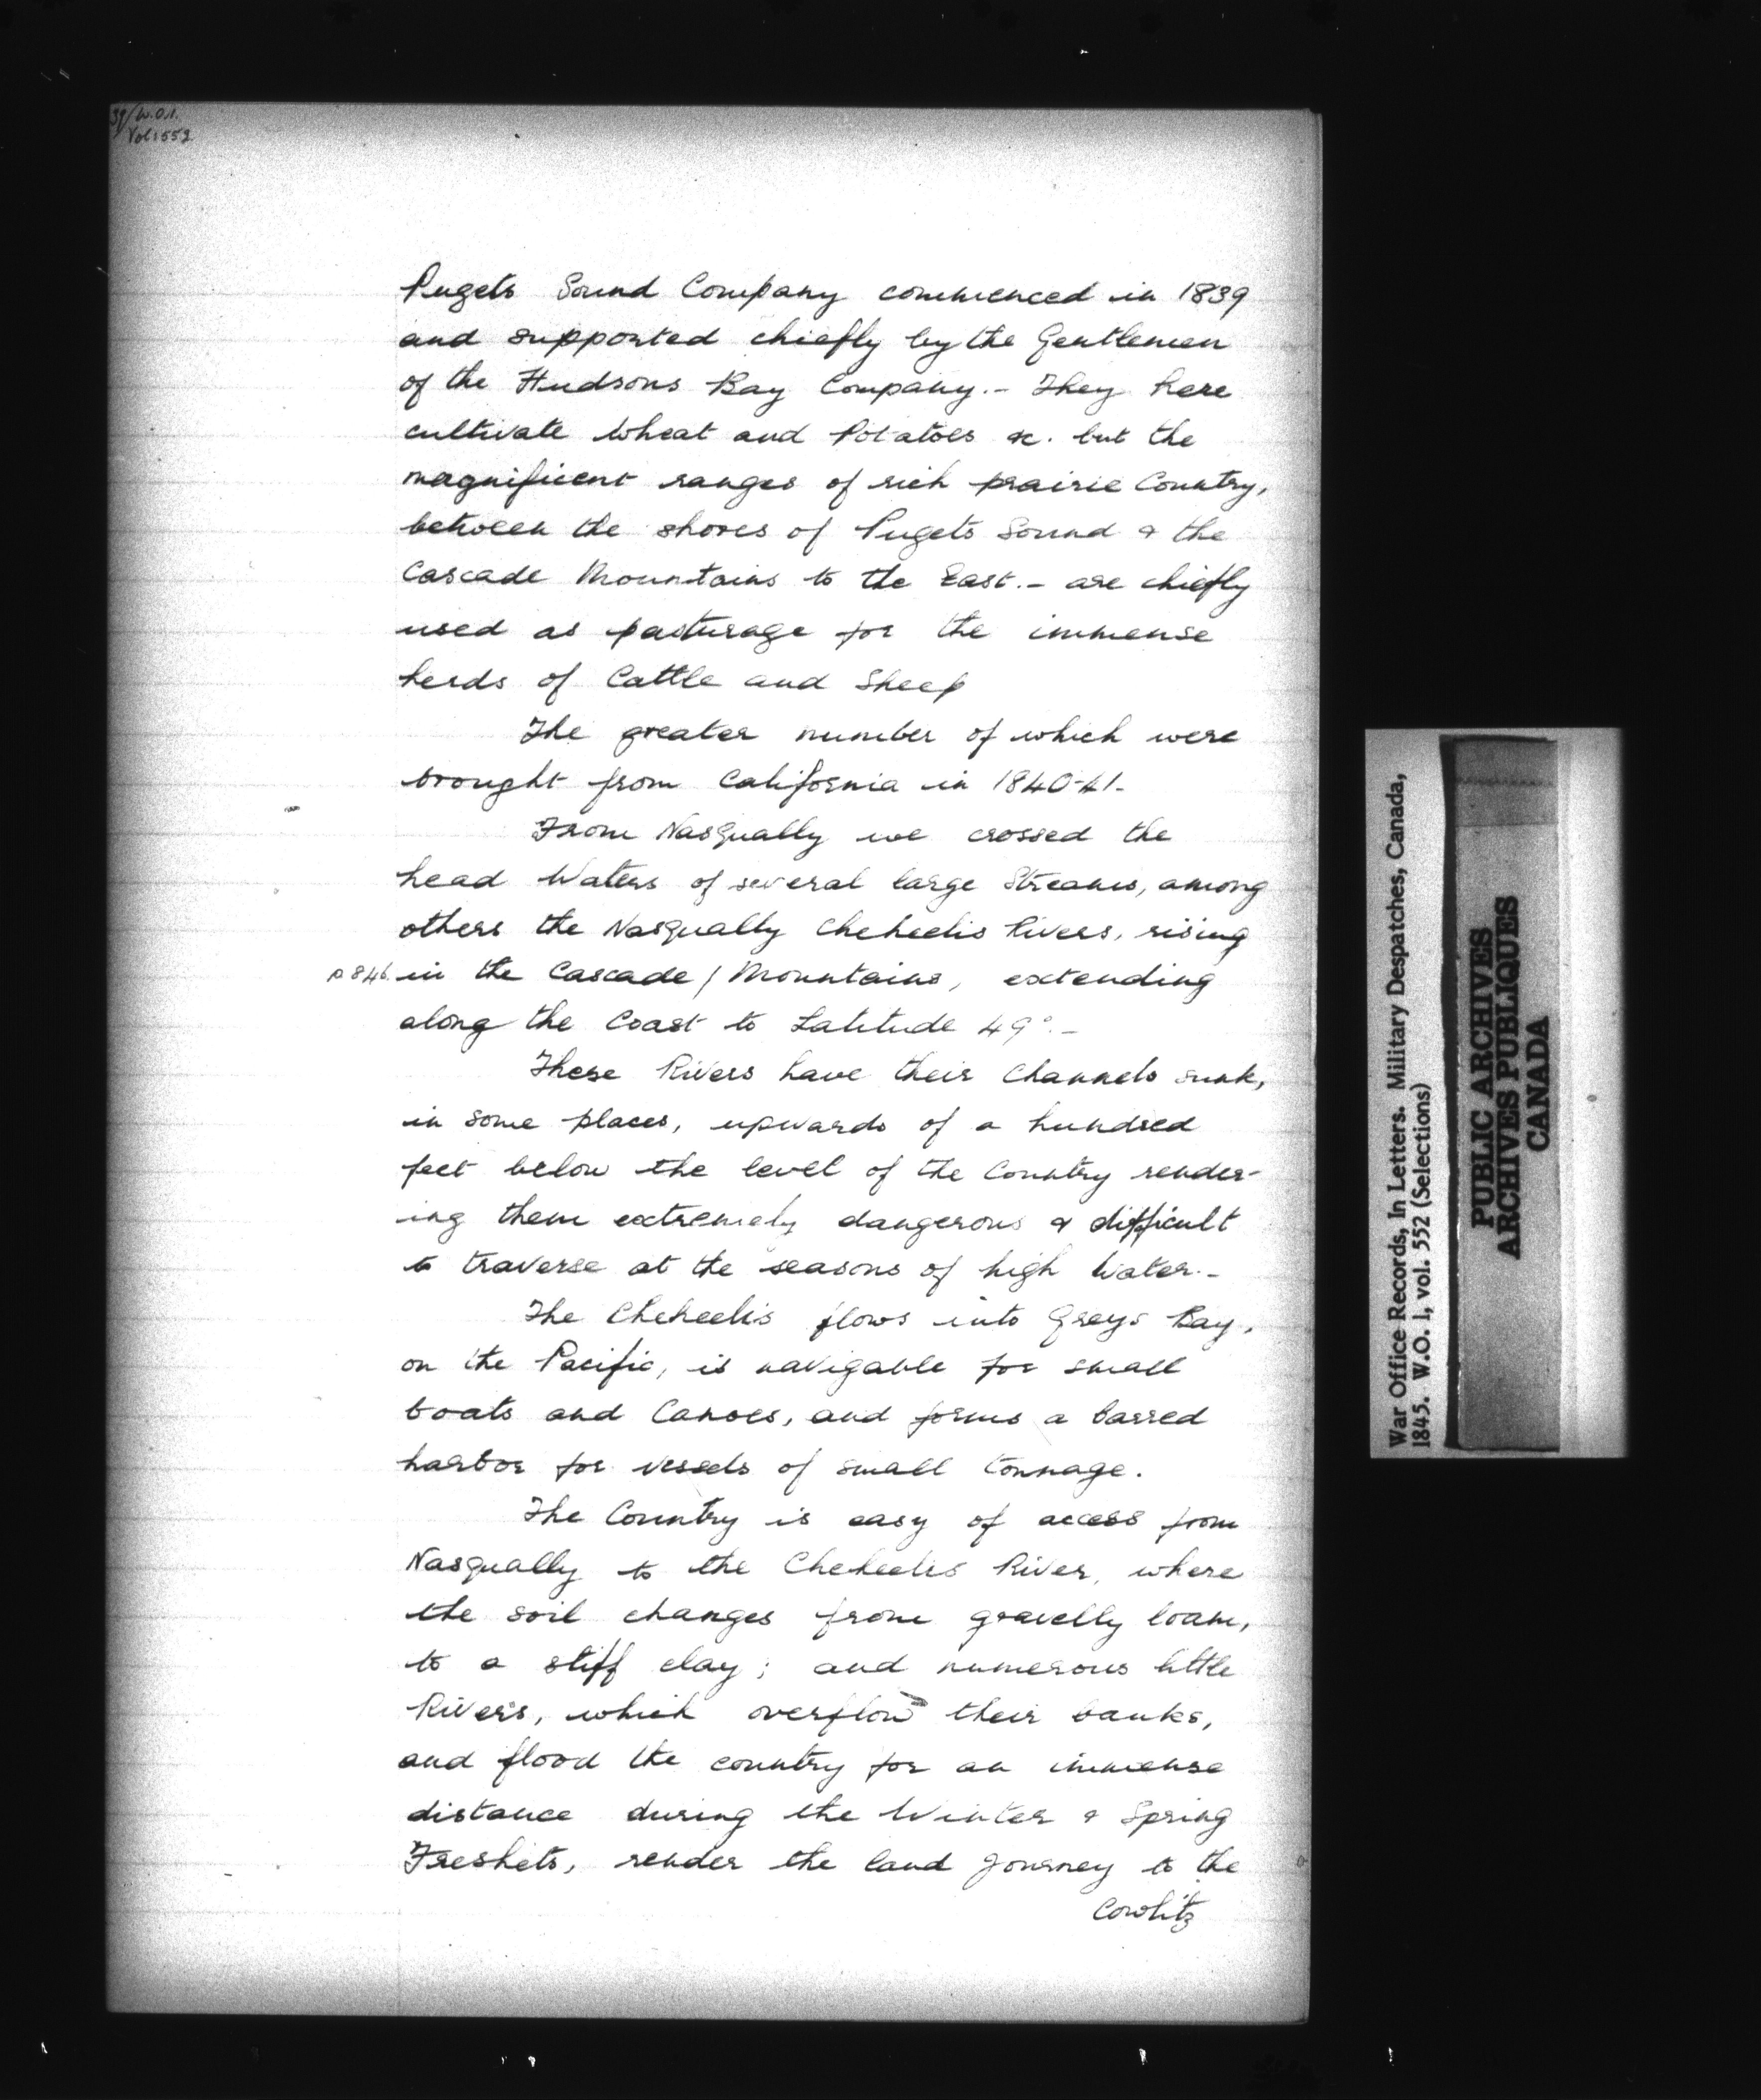 39/W.O.1.
Vol:552
Pugets Sound Company commenced in 1839
and supported chiefly by the Gentlemen
of the Hudsons Bay Company.- They here
cultivate Wheat and Potatoes &c. but the
magnificent ranges of rich prairie Country,
between the shores of Pugets Sound & the
Cascade Mountains to the East.- are chiefly
used as pasturage for the immense
herds of Cattle and Sheep
The greater number of which were
brought from California in 1840-41-
From Nasqually we crossed the
head Waters of several large Streams, among
others the Nasqually Cheheelis Rivers, rising
p 846. in the Cascade / Mountains, extending
along the Coast to Latitude 49°.-
These Rivers have their Channels sunk,
in some places, upwards of a hundred
feet below the level of the Country render-
ing them extremely dangerous & difficult
to traverse at the seasons of high Water.-
The Cheheelis flows into Greys Bay,
on the Pacific, is navigable for small
boats and Canoes, and forms a barred
harbor for vessels of small tonnage.
The Country is easy of access from
Nasqually to the Cheheelis River, where
the soil changes from gravelly loam,
to a stiff clay; and numerous little
Rivers, which overflow their banks,
and flood the country for an immense
distance during the Winter & Spring
Freshets, render the land Journey to the
Cowlitz
War Office Records, In Letters. Military Despatches, Canada,
1845. W.O. 1, vol. 552 (Selections)
PUBLIC ARCHIVES
ARCHIVES PUBLIQUES
CANADA